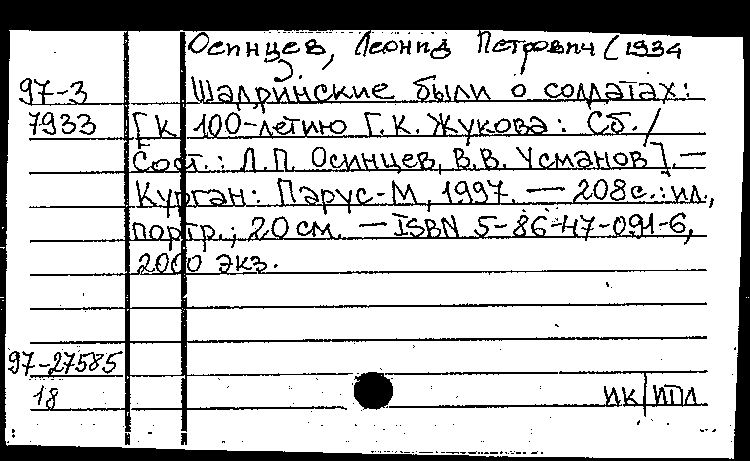 Осинцев, Леонид Петрович (1934
97-3 Шадринские были о солдатах:
7933 [К 100-летию Г.К. Жукова: Сб. /
Сост.: Л.П. Осинцев, В.В. Усманов]. —
Курган: Парус-М, 1997. — 208с.: ил.,
портр.; 20 см. — ISBN 5-86-47-091-6,
2000 экз.
97-27585
18 ИК/ИПЛ